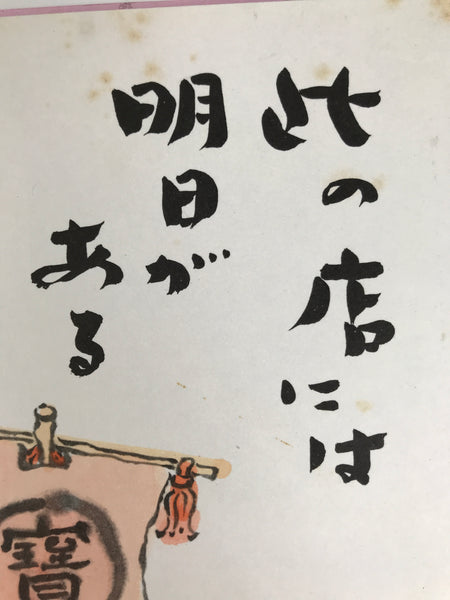 此の店には
明日が
ある
寶